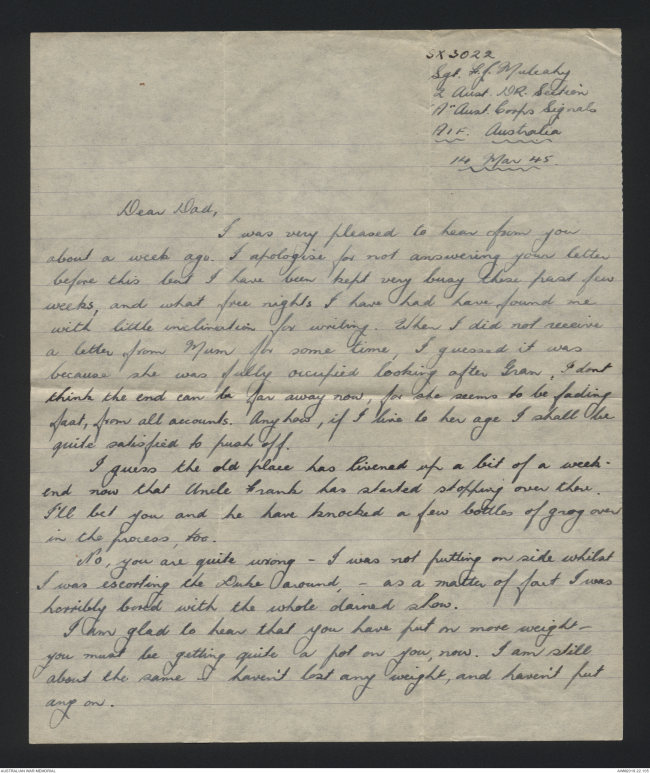 SX3022
Sgt. F.J. Mulcahy
2 Aust. DR. Section
"A" Aust. Corps Signals
A.I.F. Australia
14 Mar 45.
Dear Dad,
I was very pleased to hear from you
about a week ago. I apologise for not answering your letter
before this but I have been kept very busy these past few
weeks, and what free nights I have had have found me
with little inclination for writing. When I did not receive
a letter from Mum for some time, I guessed it was
because she was fully occupied looking after Gran. I dont
think the end can be far away now, for she seems to be fading
fast, from all accounts. Anyhow, if I live to her age I shall be
quite satisfied to push off.
I guess the old place has livened up a bit of a week-
end now that Uncle Frank has started stopping over there.
I'll bet you and he have knocked a few bottles of grog over
in the process, too.
No, you are quite wrong - I was not putting on side whilst
I was escorting the Duke around, - as a matter of fact I was
horribly bored with the whole darned show.
I am glad to hear that you have put on more weight -
you must be getting quite a pot on you, now. I am still
about the same - I haven't lost any weight, and haven't put
any on.
AUSTRALIAN WAR MEMORIAL